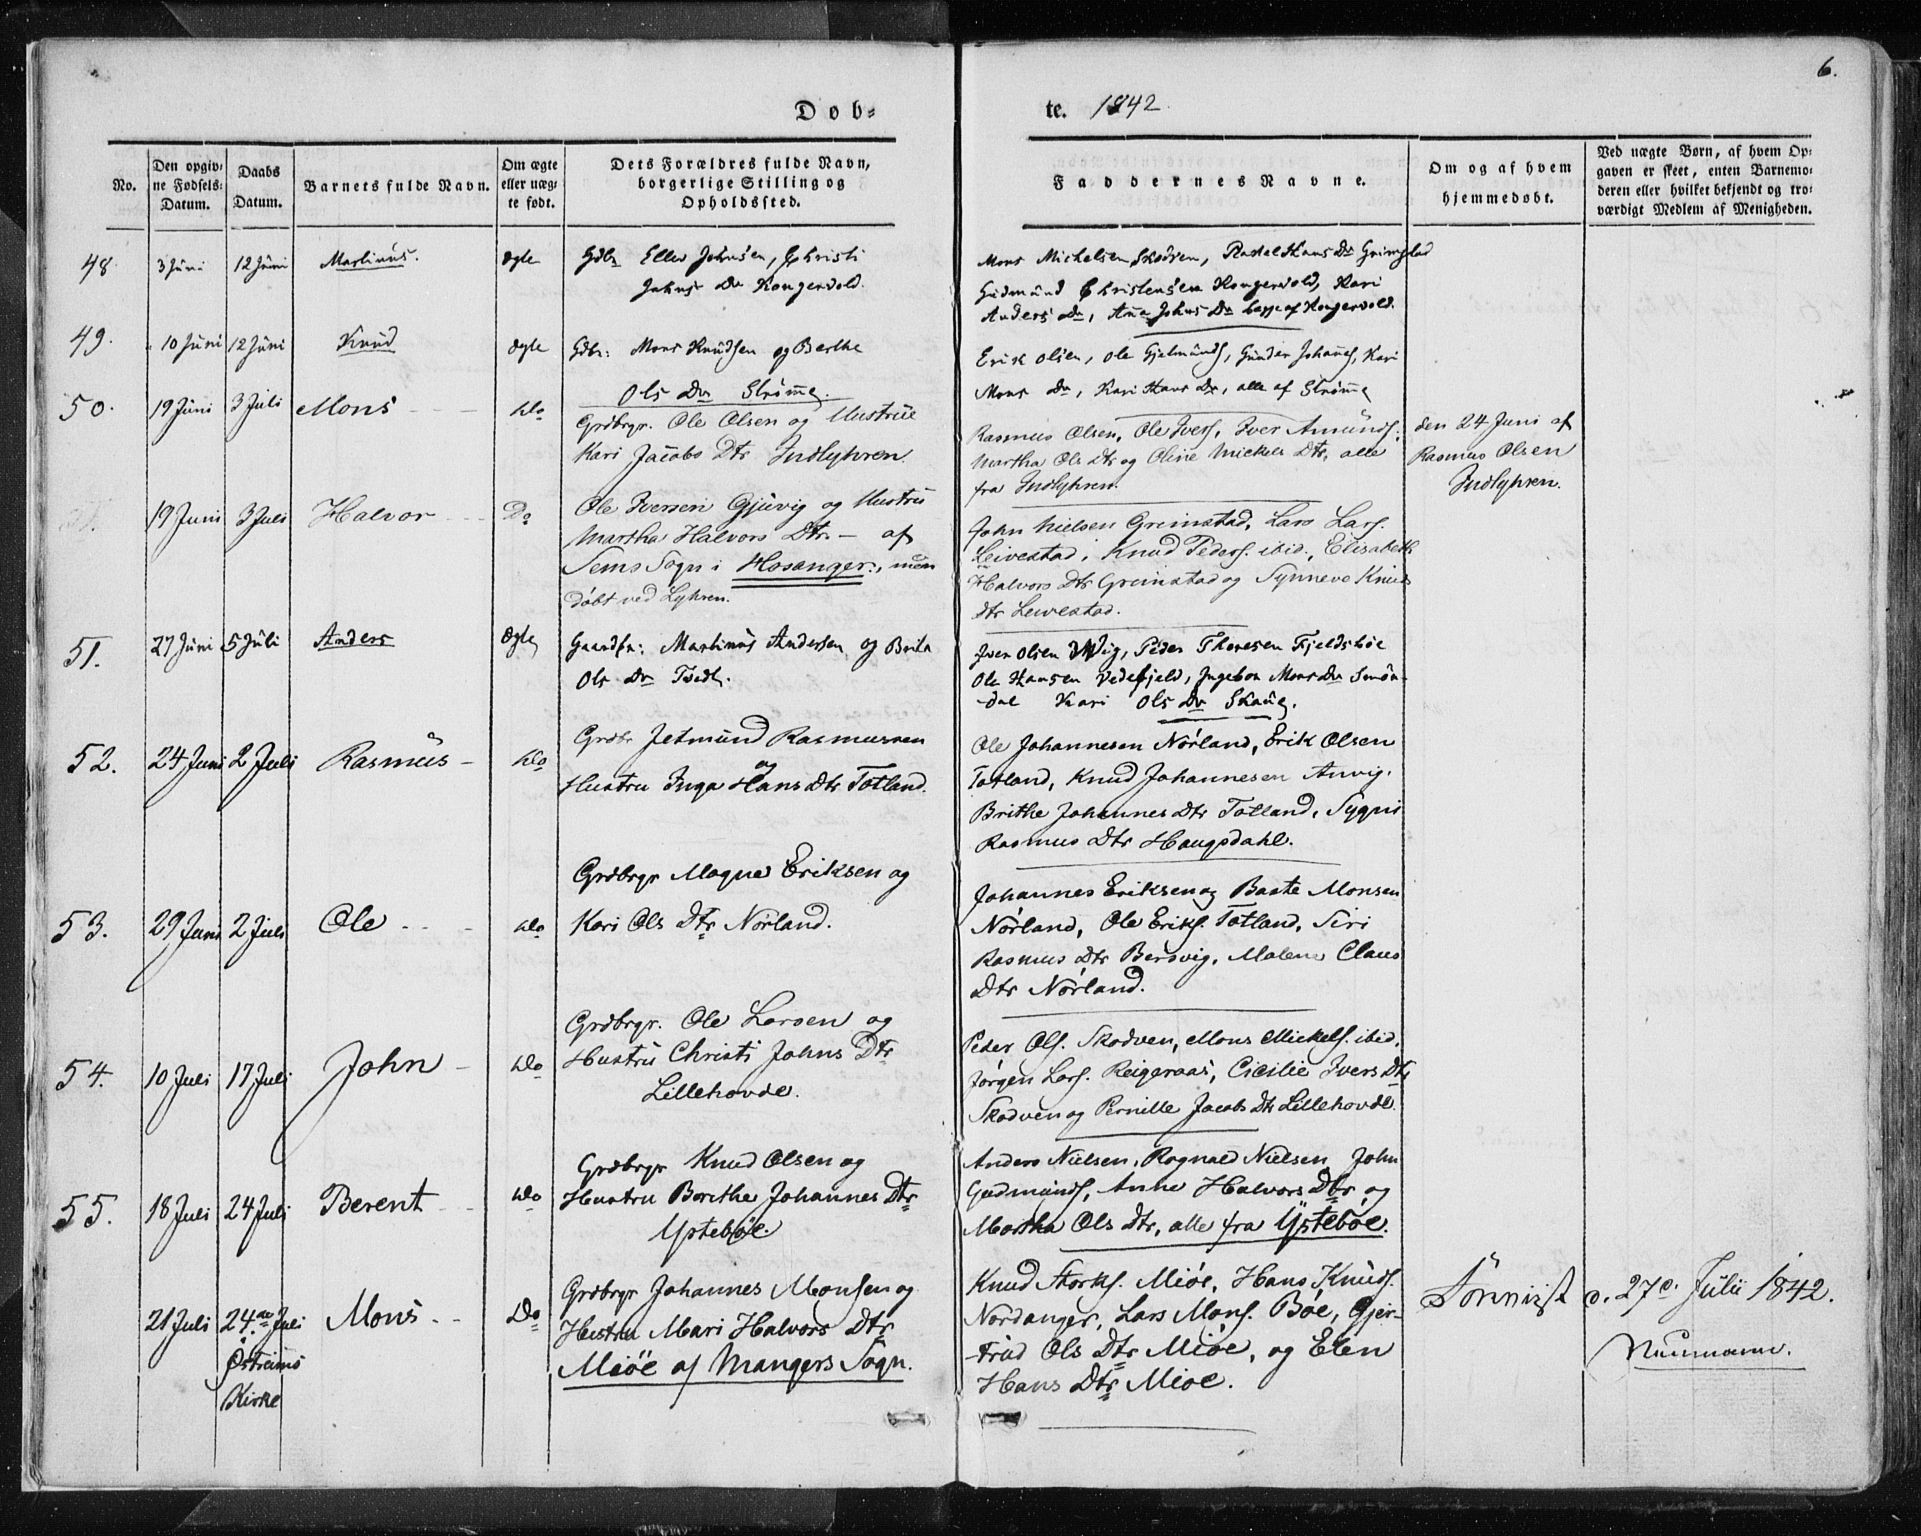 6.
Døb-
te. 1842.
No.
Den opgiv-
ne Fødsels-
Datum.
Daabs
Datum.
Barnets fulde Navn.
Om ægte
eller uæg-
te født.
Dets Forældres fulde Navn,
borgerlige Stilling og
Opholdssted.
Faddernes Navne.
Om og af hvem
hjemmedøbt.
Ved uægte Børn, af hvem Op-
gaven er skeet, enten Barnemo-
deren eller hvilket bekjendt og tro-
værdigt Medlem af Menigheden.
48. 3 Juni 12 Juni Martinus. ægte
Gdbr Johnsen, Christi
Johns Dr Kongsvold.
Mons Michelsen Skodven, Hans Dr Grimstad
Gudmund Christensen Kongsvold, Kari
Anders Dr, Anna Johns Dr begge af Kongsvold.
49. 10 Juni 12 Juni Knud ægte
Gdbr: Mons Knudsen og Berthe
Ols Dr Strømme.
Erik Olsen, Ole Gjelmunds, Gunder Johans, Kari
Mons Dr, Kari Hans Dr, alle af Strømme
50. 19 Juni 3 Juli Mons Do
Grdbrgr. Ole Olsen og Hustrue
Kari Jacobs Dtr Indlyhren.
Rasmus Olsen, Ole Ivers, Iver Amunds,
Martha Ols Dtr og Oline Mickels Dtr, alle
fra Indlyhren.
den 24 Juni af
Rasmus Olsen
Indlyhren.
19 Juni 3 Juli Halvor Do
Ole Iversen Gjuvig og Hustru
Martha Halvors Dtr. - af
Sems Sogn i Hosanger, men
døbt ved Lyhren.
John Nielsen Greinstad, Lars Lars.
Leivestad, Knud Peders. ibid, Elisabeth
Halvors Dtr Greinstad og Synneve Knuds
dtr Leivestad.
51. 27 Juni 5 Juli Anders Ægte
Gaardbr: Martinus Andersen og Brita
Ols Dr Tvedt.
Iver Olsen Wiig, Peder Thoresen Fjeldsbøe
Ole Hansen Vedefjeld, Ingebor Mons Dr Smøn-
-dal Kari Ols Dr Skaug.
52. 24 Juni 2 Juli Rasmus - Do
Grdbr Jetmund Rasmussen
og
Hustru Inga Hans Dtr Totland.
Ole Johannesen Nørland, Erik Olsen
Totland, Knud Johannesen Anvig,
Brithe Johannes Dtr Totland, Sygni
Rasmus Dtr Haugsdahl.
53. 29 Juni 2 Juli Ole Do
Grdbrgr Magne Eriksen og
Kari Ols Dtr Nørland.
Johannes Eriksen og Baste Monsen
Nørland, Ole Eriks. Totland, Siri
Rasmus Dtr Bersvig, Malene Claus
Dtr Nørland.
54. 10 Juli 17 Juli John - Do
Grdbrgr. Ole Larsen og
Hustru Christi Johns Dtr
Lillehovde.
Peder Ols. Skodven, Mons Mickels. ibid,
Jørgen Lars. Reigeraas, Cicilie Ivers Dtr
Skodven og Pernille Jacobs Dtr Lillehovde.
55. 18 Juli 24 Juli Berent Do
Grdbrgr Knud Olsen og
Hustru Berithe Johannes Dtr
Ystebøe.
Anders Nielsen, Rognald Nielsen John
Gudmunds, Anne Halvors Dtr, og
Martha Ols Dtr, alle fra Ystebøe.
21 Juli 24 Juli
Østreims
Kirke
Mons Do
Grdbrgr Johannes Monsen og
Hustru Mari Halvors Dtr
Miøe af Mangers Sogn.
Knud Storks. Miøe, Hans Knuds.
Nordanger, Lars Mons. Bøe, Gjer-
-trud Ols Dtr Miøe, og Elen
Hans Dtr Miøe.
d. 27e Julii 1842.
Neumann.